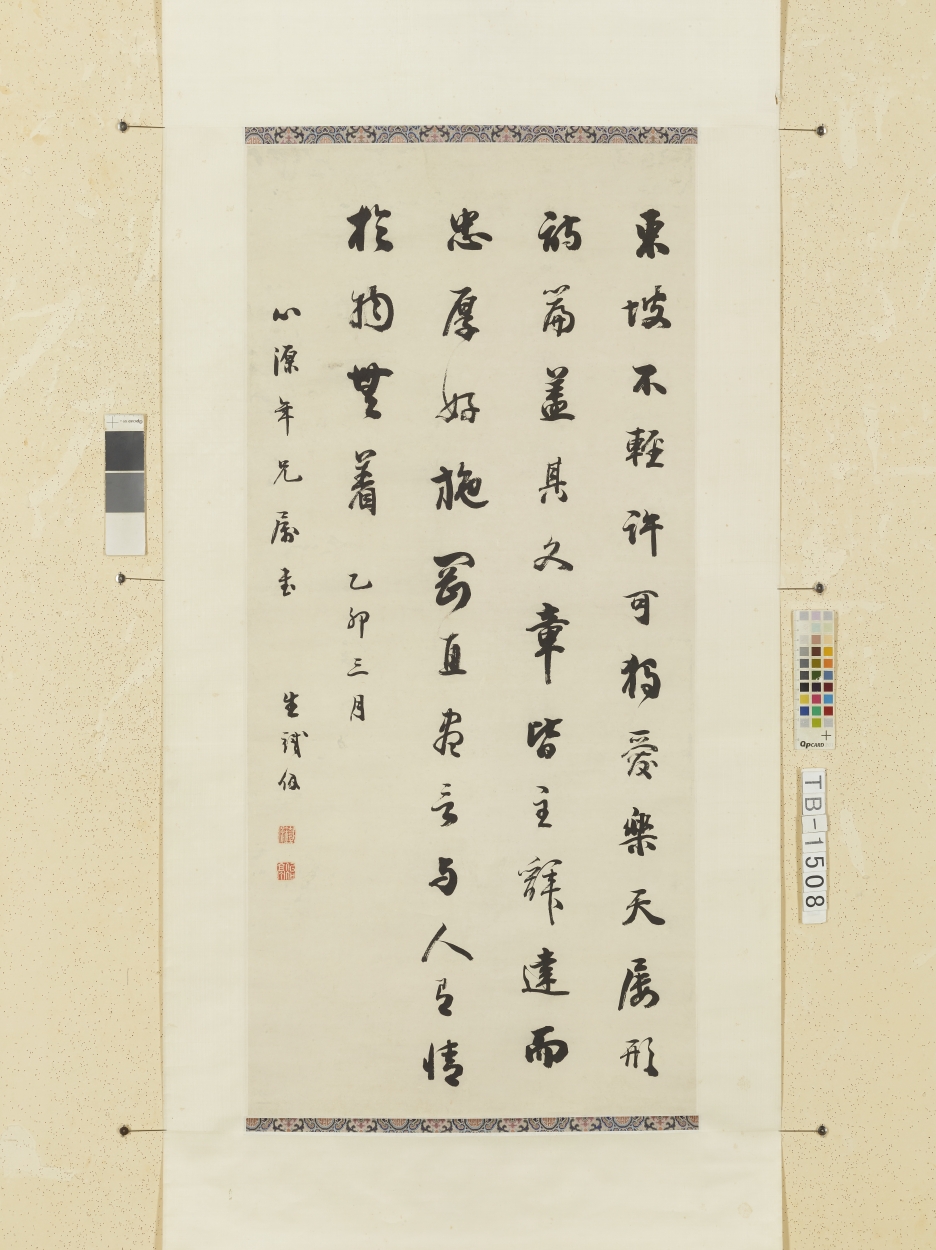 東坡不輕許可獨愛樂天屢形
詩篇蓋其文章皆主辭達而
忠厚好施剛直盡言与人有情
於物無着 乙卯三月
心源年兄屬書
生
TB-1508
QPCARD